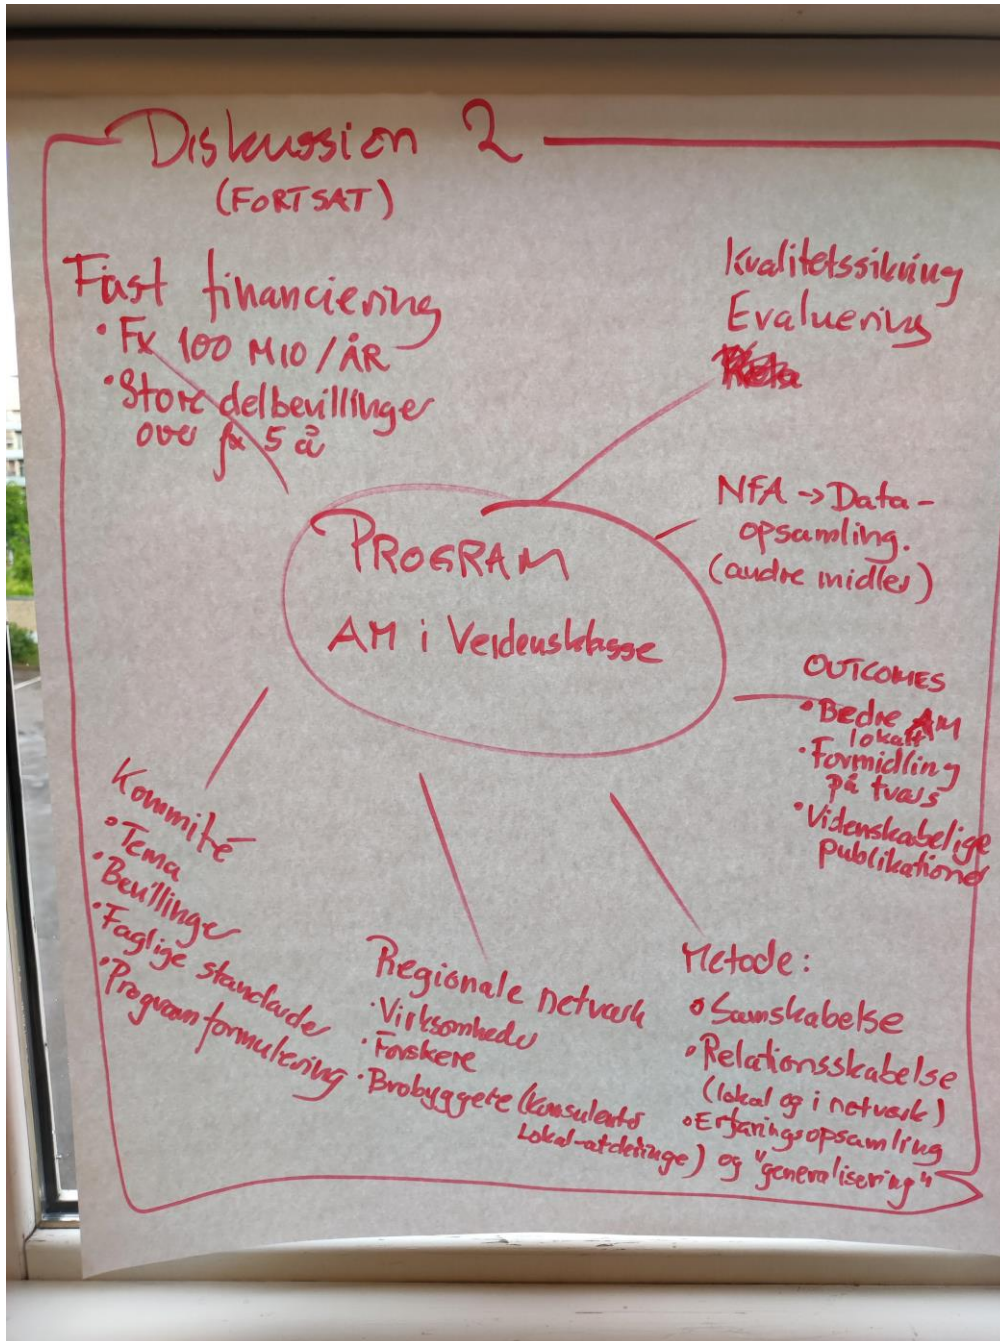 Diskussion 2
(FORTSAT)
Fast financiering
• Fx 100 MIO/ÅR
• Store delbevillinger
over fx 5 å
Kvalitetssikring
Evaluering
NFA -> Data-
opsamling.
(andre midler)
PROGRAM
AM i Verdensklasse
OUTCOMES
• Bedre AM
lokalt
• Formidling
på tværs
• Videnskabelige
publikationer
Kommité
• Tema
• Bevillinger
• Faglige standarder
• Programformulering
Regionale netværk
• Virksomheder
• Forskere
• Brobyggere (konsulenter
Lokal-afdelinger)
Metode:
• Samskabelse
• Relationsskabelse
(lokal og i netværk)
• Erfaringsopsamling
og "generalisering"